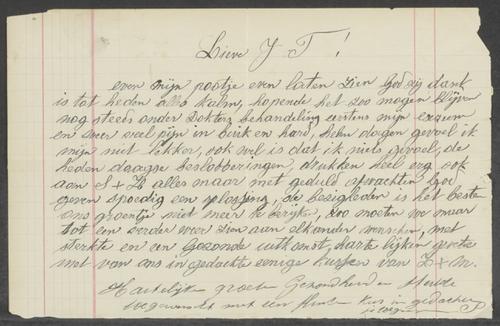 Lieve J T!
even mijn pootje even laten zien God zij dank
is tot heden alles kalm, hopende het zoo mogen blijven
nog steeds onder Doktors behandeling eerstens mijn
en weer veel pijn in buik en hand, heden dagen gevoel ik
mijn niet lekker, ook wel is dat ik niets gevoel, de
heden daagse beslobberingen, drukken heel erg ook
aan S + L alles maar met geduld, God
geven spoedig een oplossing, de besigheden is het beste
ons groentje niet meer te krijgen, zoo moeten we maar
tot een verder weer zien aan elkanders wenschen, met
sterkte en een Gezonde uitkomst, harte lijken groete
met van ons in gedachte eenige kussen van L + M.
Hartelijke groeten Gezondheid en Sterkte
toegewenscht met een kus in gedachten